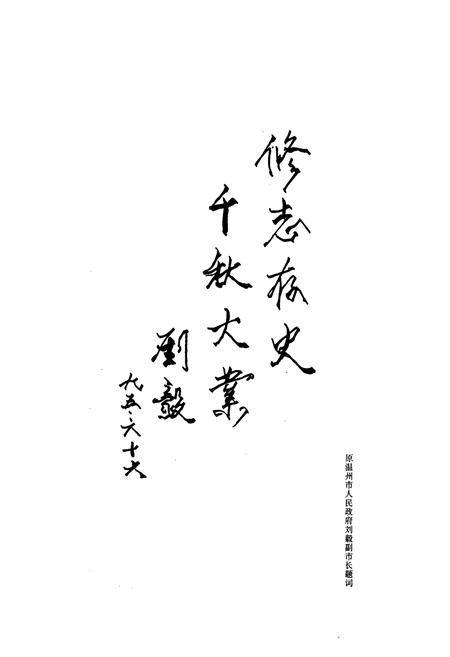 修志存史
千秋大業
劉毅
九五·六十六
原温州市人民政府刘毅副市长题词